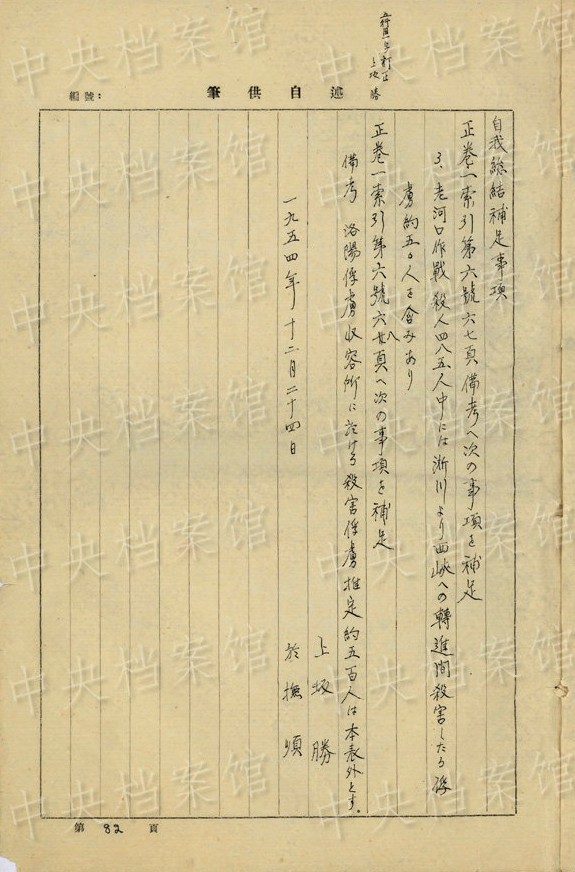 上坂 勝
述自供筆
編號:
自我総結補足事項
正巻一索引第六號六七頁備考へ次の事項を補足
3. 老河口作戦殺人四八五人中には淅川より西峽への轉進間殺害したる俘
虜約五〇人を含みあり
正巻一索引第六號六八頁へ次の事項を補足
備考 洛陽俘虜収容所に於ける殺害俘虜推定約五百人は本表外とす。
上坂 勝
一九五四年十二月二十四日
於撫順
第 82 頁
中央档案馆